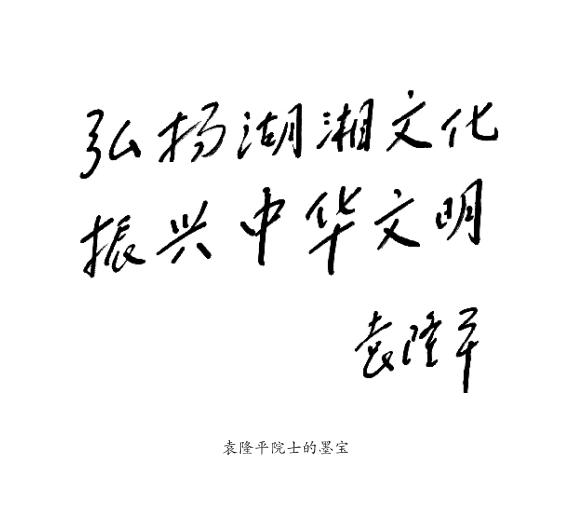 弘扬湖湘文化
振兴中华文明
袁隆平
袁隆平院士的墨宝